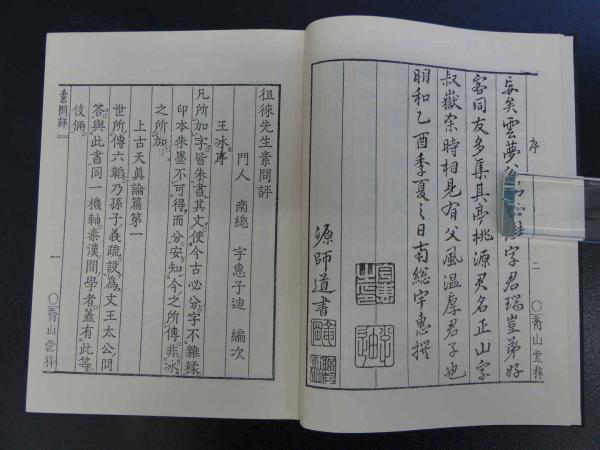 序
妄矣雲夢
字君瑞豈弟好
客同友多集其亭桃源君名正山字
叔嶽奈時相見有父風温厚君子也
明和乙酉季夏之日南総宇惠撰
源師道書
二
青山堂梓
徂徠先生素問評
門人 南總 宇惠子迪 編次
王冰序
凡所加字皆朱書其文使今古必分字不雜糅
印本朱墨不可得而分安知今之所傳非冰
之所加
上古天眞論篇第一
世所傳六韜乃孫子義疏設爲文王太公問
答與此書同一機軸秦漢間學者蓋有此等
伎倆
素問評
一
青山堂梓